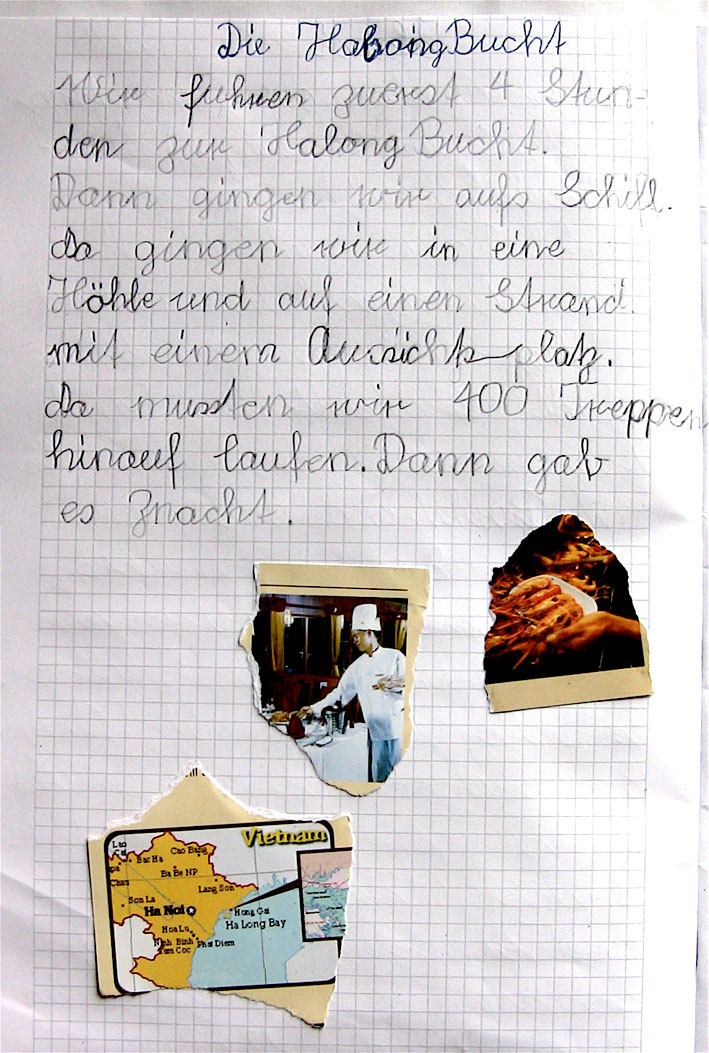 Die Halong Bucht
Wir fuhren zuerst 4 Stun-
den zur Halong Bucht.
Dann gingen wir aufs Schiff.
da gingen wir in eine
Höhle und auf einen Strand.
mit einem Aussichtsplatz.
da mussten wir 400 Treppen
hinauf laufen. Dann gab
es Znacht.
Vietnam
Lao
Cai
Cao Bang
Bac Ha
pa
Ba Be NP
Chau
Lang Son
Son La
Ha Noi
Hong Gai
Ha Long Bay
Hoa Lu
Ninh Binh
Phat Diem
Tam Coc